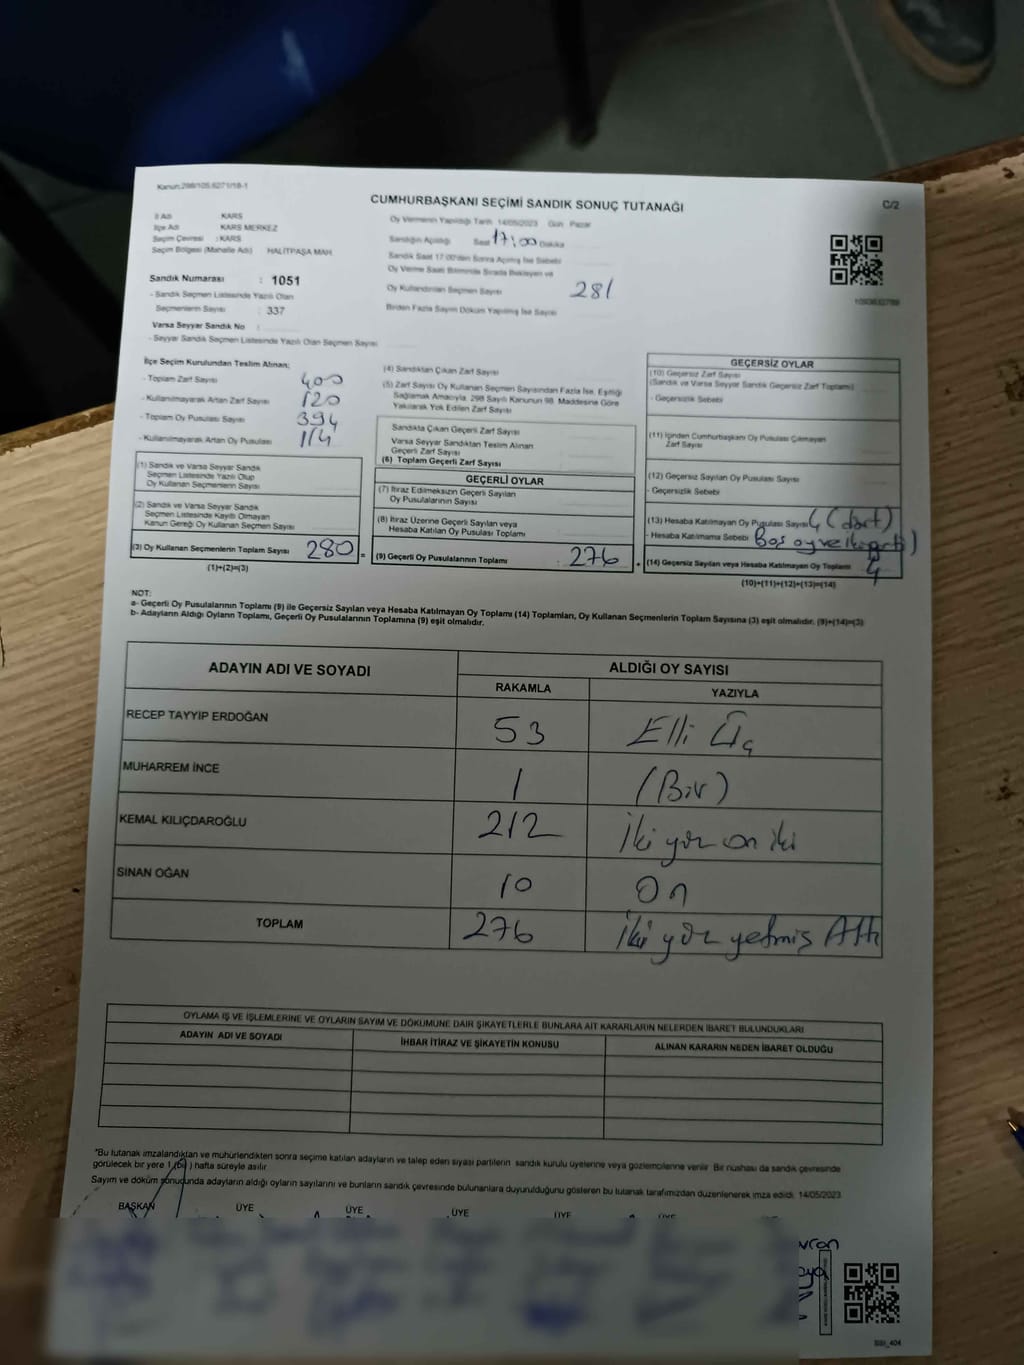 Kanun:298/105,6271/18-1
CUMHURBAŞKANI SEÇİMİ SANDIK SONUÇ TUTANAĞI
C/2
İl Adı KARS
İlçe Adı KARS MERKEZ
Seçim Çevresi : KARS
Seçim Bölgesi (Mahalle Adı) HALİTPAŞA MAH.
Oy Vermenin Yapıldığı Tarih 14/05/2023 Gün Pazar
Sandığın Açıldığı Saat 17:00 Dakika
Sandık Saat 17:00'den Sonra Açılmış İse Sebebi
Oy Verme Saati Bitiminde Sırada Bekleyen ve
Oy Kullandırılan Seçmen Sayısı 281
Birden Fazla Sayım Döküm Yapılmış İse Sayısı
Sandık Numarası : 1051
- Sandık Seçmen Listesinde Yazılı Olan
Seçmenlerin Sayısı : 337
Varsa Seyyar Sandık No :
- Seyyar Sandık Seçmen Listesinde Yazılı Olan Seçmen Sayısı
İlçe Seçim Kurulundan Teslim Alınan;
- Toplam Zarf Sayısı 400
- Kullanılmayarak Artan Zarf Sayısı 120
- Toplam Oy Pusulası Sayısı 394
- Kullanılmayarak Artan Oy Pusulası 114
(1) Sandık ve Varsa Seyyar Sandık
Seçmen Listesinde Yazılı Olup
Oy Kullanan Seçmenlerin Sayısı
(2) Sandık ve Varsa Seyyar Sandık
Seçmen Listesinde Kayıtlı Olmayan
Kanun Gereği Oy Kullanan Seçmen Sayısı
(3) Oy Kullanan Seçmenlerin Toplam Sayısı 280 =
(1)+(2)=(3)
(4) Sandıktan Çıkan Zarf Sayısı
(5) Zarf Sayısı Oy Kullanan Seçmen Sayısından Fazla İse, Eşitliği
Sağlamak Amacıyla, 298 Sayılı Kanunun 98. Maddesine Göre
Yakılarak Yok Edilen Zarf Sayısı
Sandıkta Çıkan Geçerli Zarf Sayısı
Varsa Seyyar Sandıktan Teslim Alınan
Geçerli Zarf Sayısı
(6) Toplam Geçerli Zarf Sayısı
GEÇERLİ OYLAR
(7) İtiraz Edilmeksizin Geçerli Sayılan
Oy Pusulalarının Sayısı
(8) İtiraz Üzerine Geçerli Sayılan veya
Hesaba Katılan Oy Pusulaları Toplamı
(9) Geçerli Oy Pusulalarının Toplamı : 276 +
GEÇERSİZ OYLAR
(10) Geçersiz Zarf Sayısı
(Sandık ve Varsa Seyyar Sandık Geçersiz Zarf Toplamı)
- Geçersizlik Sebebi
(11) İçinden Cumhurbaşkanı Oy Pusulası Çıkmayan
Zarf Sayısı
(12) Geçersiz Sayılan Oy Pusulası Sayısı
- Geçersizlik Sebebi
(13) Hesaba Katılmayan Oy Pusulası Sayısı 4 (dört)
- Hesaba Katılmama Sebebi Boş oy ve
(14) Geçersiz Sayılan veya Hesaba Katılmayan Oy Toplamı 4
(10)+(11)+(12)+(13)=(14)
NOT:
a- Geçerli Oy Pusulalarının Toplamı (9) ile Geçersiz Sayılan veya Hesaba Katılmayan Oy Toplamı (14) Toplamları, Oy Kullanan Seçmenlerin Toplam Sayısına (3) eşit olmalıdır. (9)+(14)=(3)
b- Adayların Aldığı Oyların Toplamı, Geçerli Oy Pusulalarının Toplamına (9) eşit olmalıdır.
ADAYIN ADI VE SOYADI
ALDIĞI OY SAYISI
RAKAMLA YAZIYLA
RECEP TAYYİP ERDOĞAN 53 Elli Üç
MUHARREM İNCE 1 (Bir)
KEMAL KILIÇDAROĞLU 212 İki yüz on iki
SİNAN OĞAN 10 On
TOPLAM 276 İki yüz yetmiş Altı
OYLAMA İŞ VE İŞLEMLERİNE VE OYLARIN SAYIM VE DÖKÜMÜNE DAİR ŞİKAYETLERLE BUNLARA AİT KARARLARIN NELERDEN İBARET BULUNDUKLARI
ADAYIN ADI VE SOYADI İHBAR İTİRAZ VE ŞİKAYETİN KONUSU ALINAN KARARIN NEDEN İBARET OLDUĞU
"Bu tutanak imzalandıktan ve mühürlendikten sonra seçime katılan adayların ve talep eden siyasi partilerin sandık kurulu üyelerine veya gözlemcilerine verilir. Bir nüshası da sandık çevresinde
görülecek bir yere 1 (bir) hafta süreyle asılır.
Sayım ve döküm sonucunda adayların aldığı oyların sayılarını ve bunların sandık çevresinde bulunanlara duyurulduğunu gösteren bu tutanak tarafımızdan düzenlenerek imza edildi. 14/05/2023
BAŞKAN ÜYE ÜYE ÜYE ÜYE ÜYE